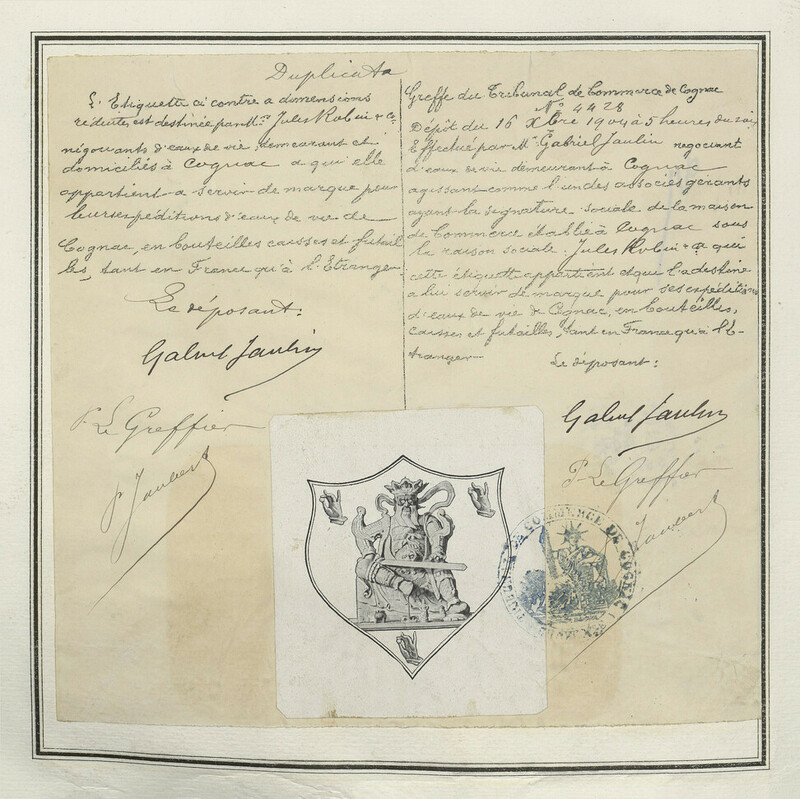 Duplicata
L'Etiquette ci contre a dimensions
réduites est destinée par Mrs Jules Robin & Co
négociants d'eaux de vie, demeurant et
domiciliés à Cognac a qui elle
appartient a servir de marque pour
leurs expéditions d'eaux de vie de
Cognac, en bouteilles caisses et futail
les, tant en France qu'à l'Etranger.
Le déposant:
Gabriel Jaulin
P. Le Greffier
Greffe du Tribunal de Commerce de Cognac
No 4428
Dépôt du 16 Xbre 1904 à 5 heures du soir
Effectué par Mr Gabriel Jaulin négociant
d'eaux en vie demeurant à Cognac
agissant comme l'un des associés gérants
ayant la signature sociale de la maison
de Commerce établie à Cognac sous
la raison sociale. Jules Robin & Co qui
cette étiquette appartient et qui l'a destine
a lui servir de marque pour ses expéditions
d'eaux de vie de Cognac, en bouteilles,
caisses et futailles, tant en France qu'à l'E-
tranger
Le déposant:
Gabriel Jaulin
P. Le Greffier
TRIBUNAL DE COMMERCE DE COGNAC